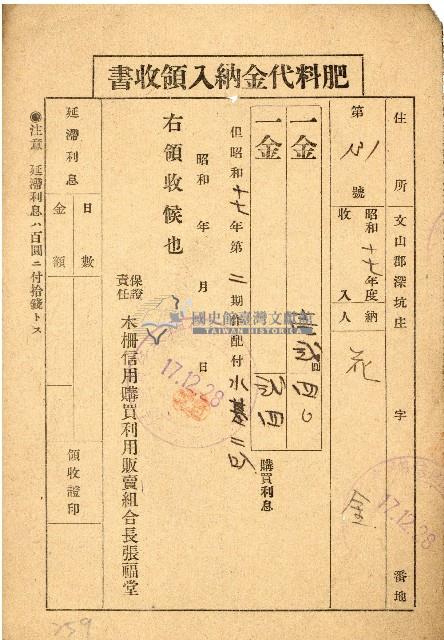 肥料代金納入領收書
住所 文山郡深坑庄 字 番地
第 號 昭和十七年度 納
收入人
一金
一金 購買利息
但昭和十七年第二期作配付
右領收候也
昭和 年 月 日
17.12.28
17.12.28
保證責任 木柵信用購買利用販賣組合長張福堂
延滯利息
日數
金額
領收證印
●注意 延滯利息ハ百圓ニ付拾錢トス
國史館臺灣文獻館
TAIWAN HISTORICA
259